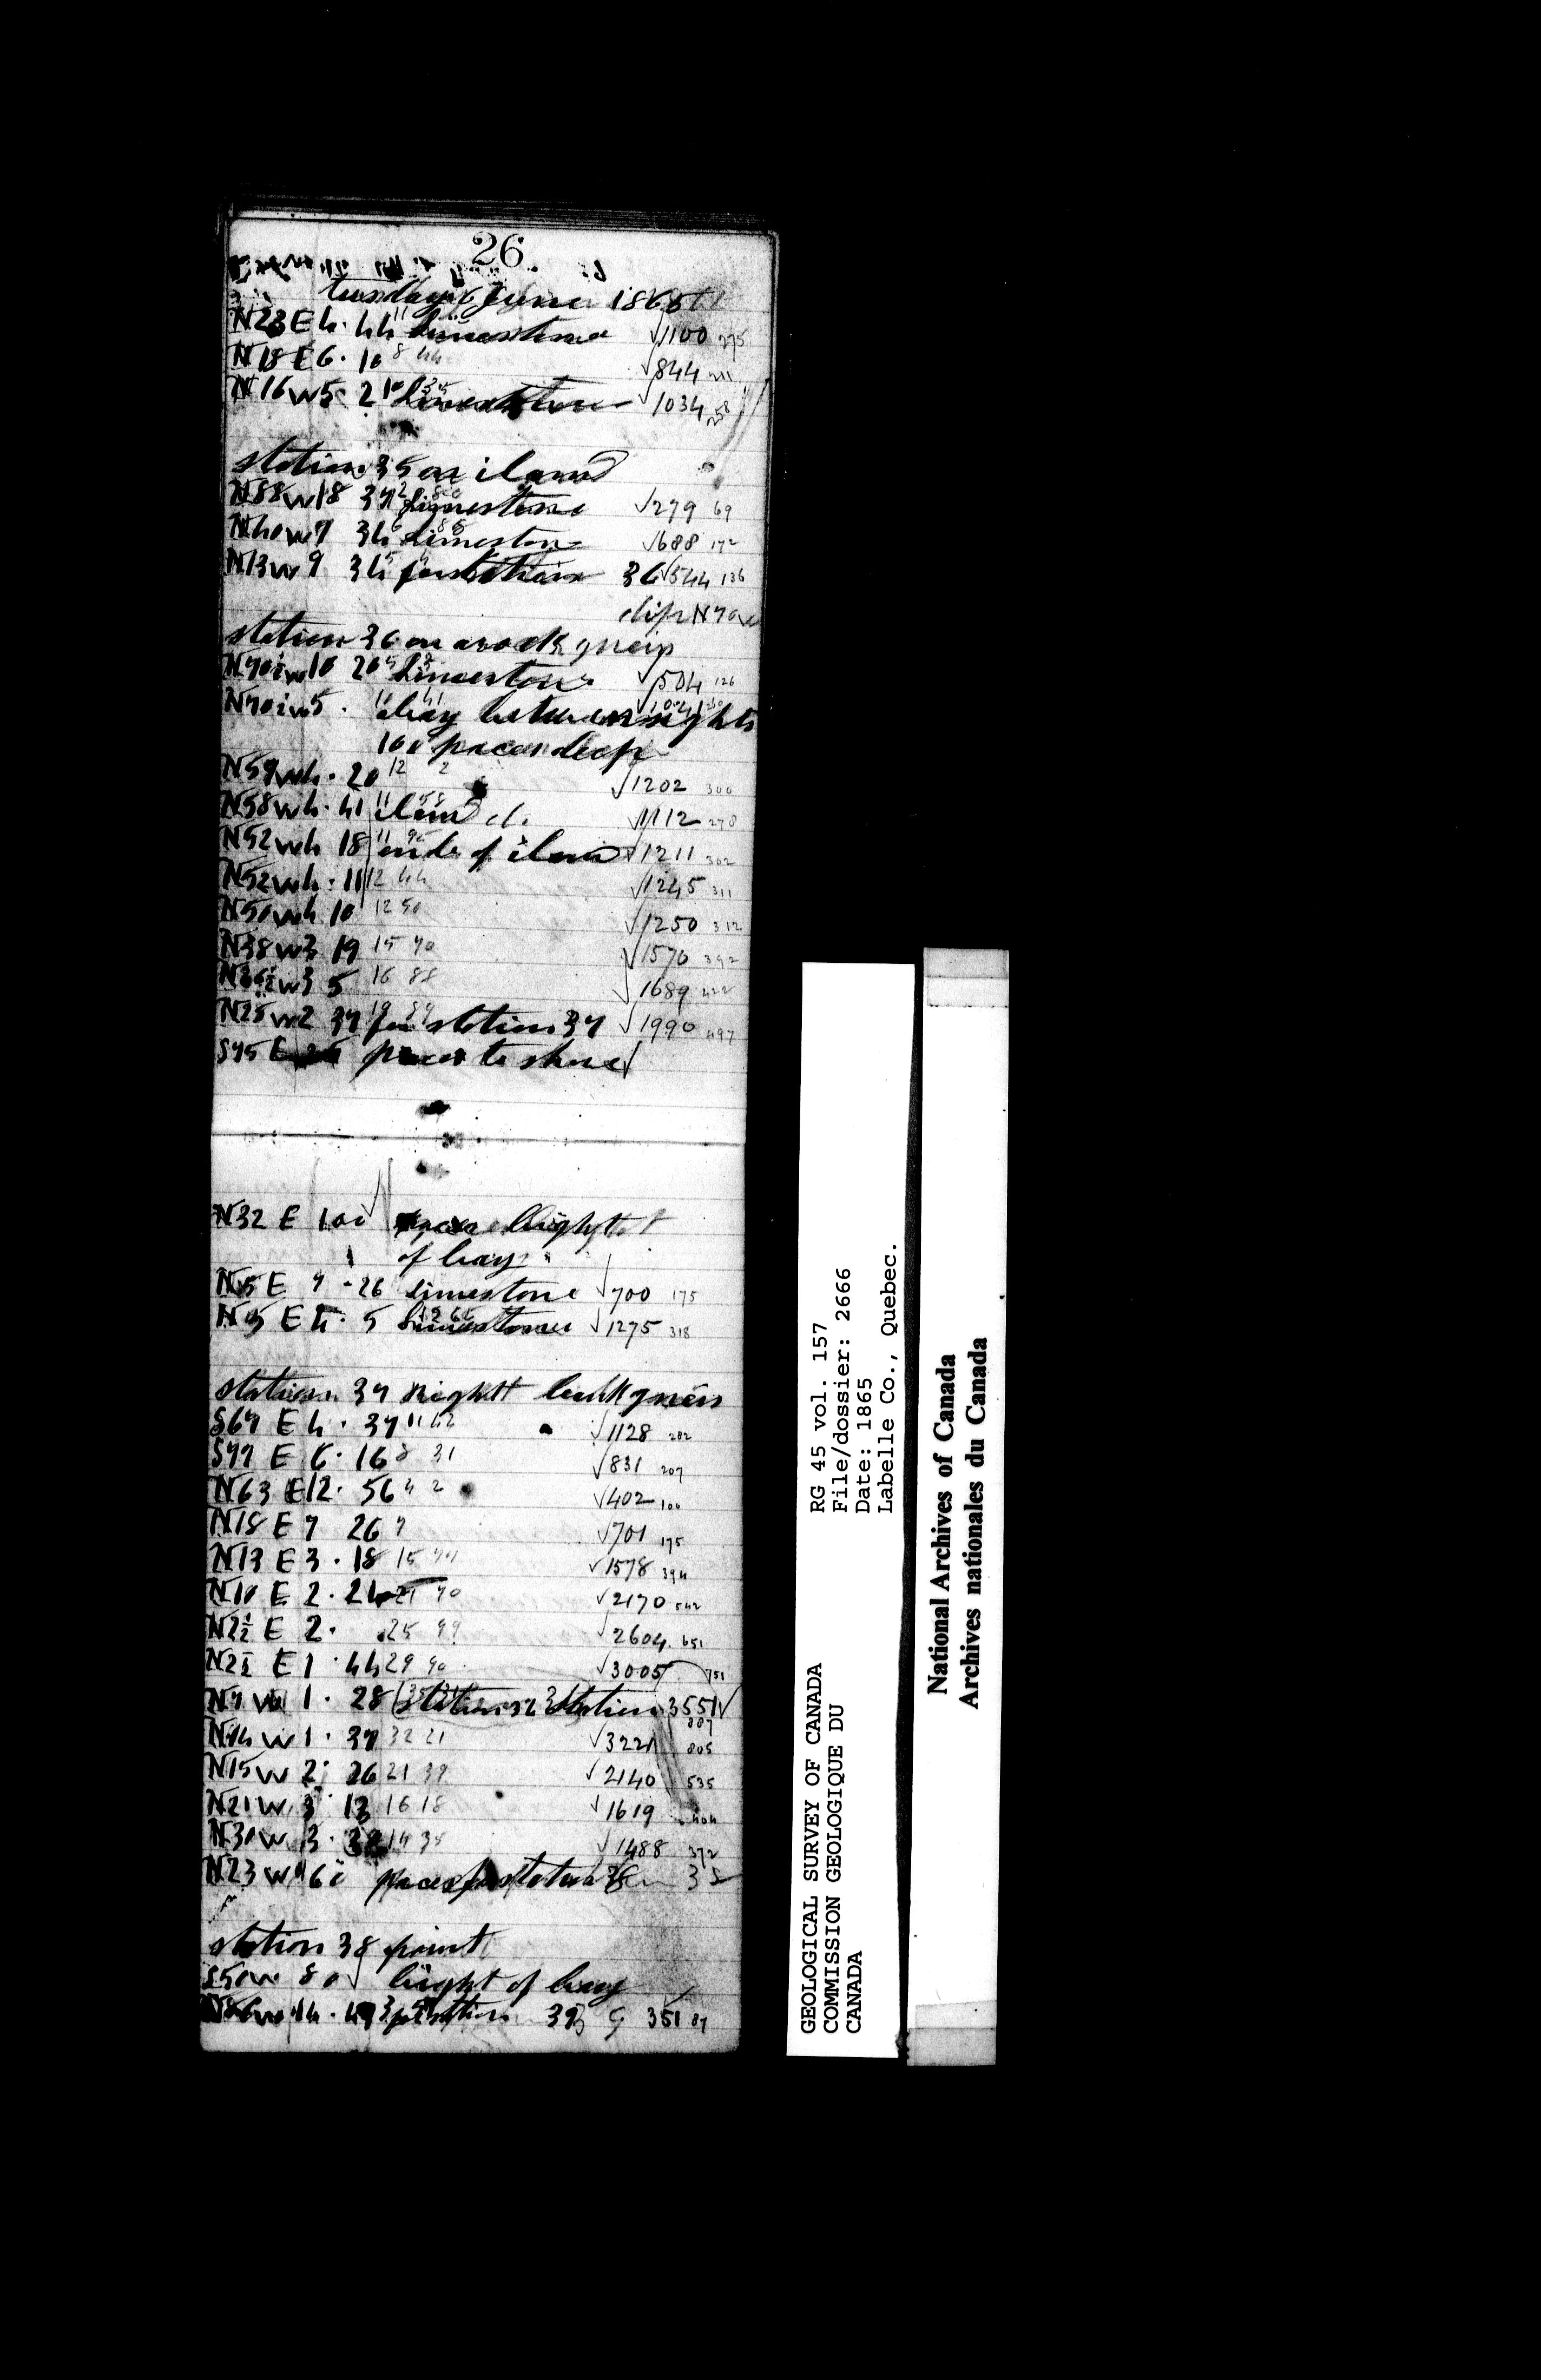 26
tusday 6 June 1865
N23E 4. 44 11 limestone √1100 275
N18E6. 10 8 44 √844 211
N16W5 21 limestone √1034 258
station 35 on iland
N88W18 37 2 limestone √279 69
N40W7 34 6 88 limestone √688 172
N13W9 34 5 4 for station 36 √544 136
dip N70
station 36 on a rock gneip
N70½W10 20 5 limestone √504 126
N70½W5. bay between sights
100 paces deep
N59W4. 20 12 2 √1202 300
N58W4. 41 11 iland √1112 278
N52W4 18 11 ende of iland √1211 302
N52W4. 11 12 44 √1245 311
N50W4 10 12 50 √1250 312
N38W3 19 15 70 √1570 392
N36½W3 5 16 88 √1689 422
N25W2 37 19 89 for station 37 √1990 497
S75E paces to shore √
N32 E 100 √ hight
of bay
N5 E 7 - 26 limestone √700 175
N5 E 4. 5 limestone √1275 318
station 37 right bank gneis
S67 E 4. 37 11 42 √1128 282
S77 E 6. 16 8 31 √831 207
N63 E12. 56 4 2 √402 100
N18 E 7 26 7 √701 175
N13 E 3. 18 15 77 √1578 394
N10 E 2. 24 21 70 √2170 542
N2½ E 2. 25 99 √2604 651
N2½ E 1. 44 29 90 √3005 751
N7 W 1. 28 station 3551√
887
N14 W 1. 37 32 21 √3221 805
N15W 2. 26 21 39 √2140 535
N21W 3 13 16 18 √1619 404
N30W 3. 32 14 38 √1488 372
N23W 60 paces for station 38
station 38 point
S50W 80√ hight of bay
N86W 14. 49 for station 39 G 351 87
RG 45 vol. 157
File/dossier: 2666
Date: 1865
Labelle Co., Quebec.
GEOLOGICAL SURVEY OF CANADA
COMMISSION GEOLOGIQUE DU
CANADA
National Archives of Canada
Archives nationales du Canada